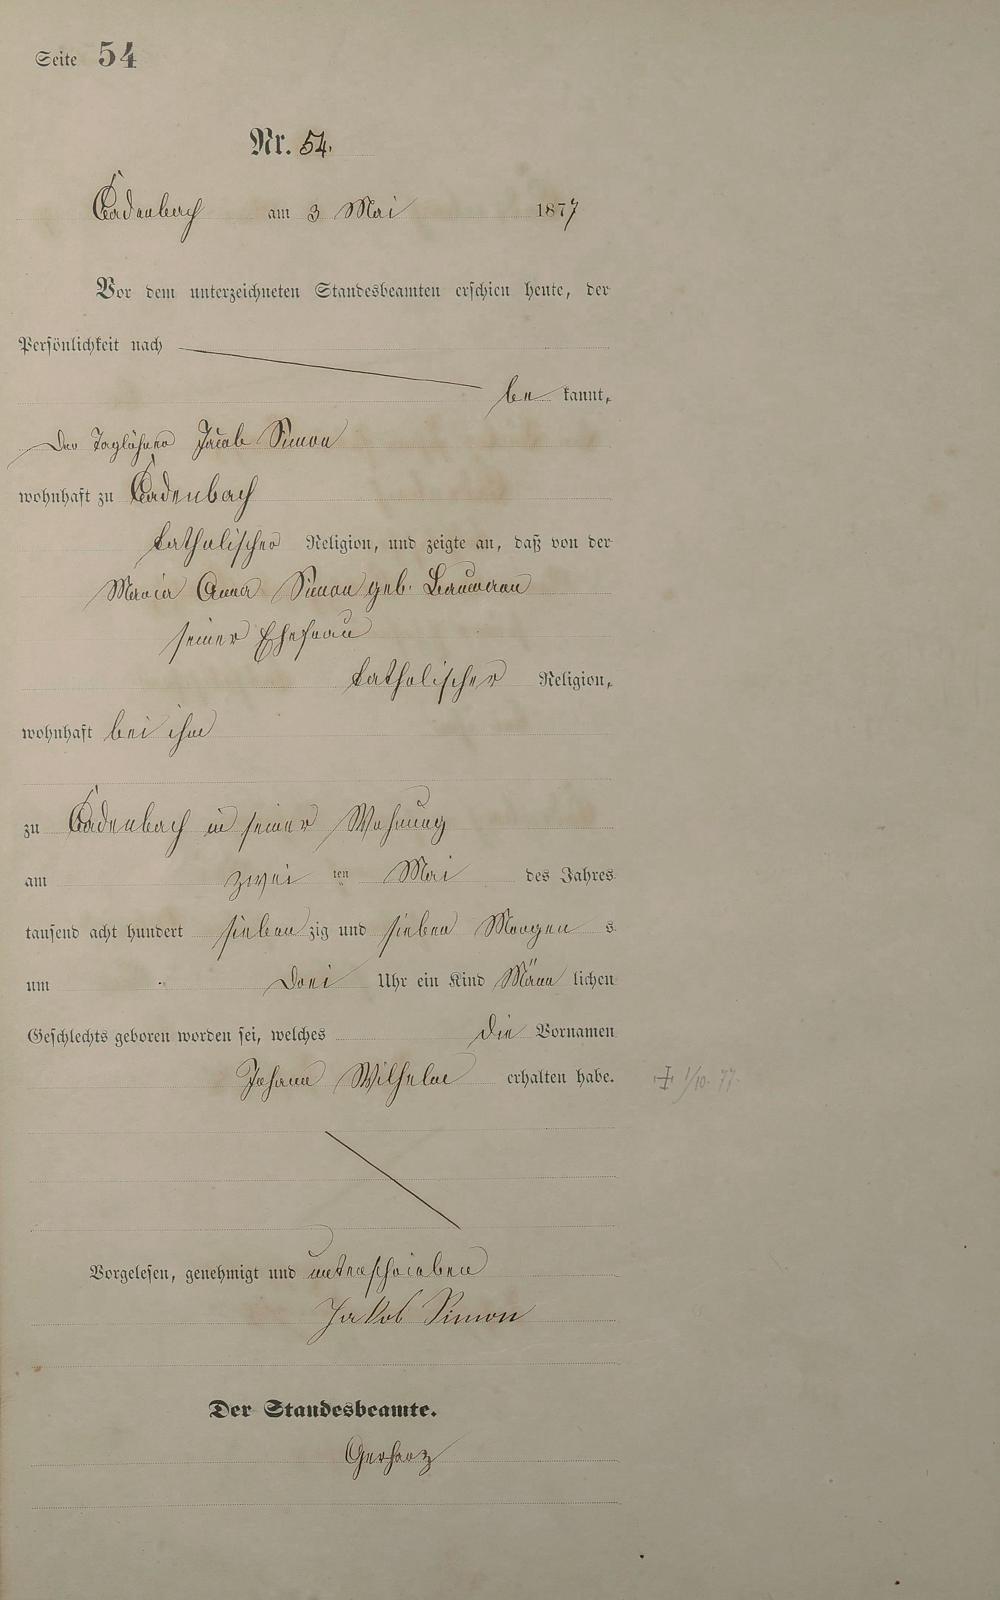 Seite 54
Nr. 54.
Cadenbach am 3 Mai 1877
Vor dem unterzeichneten Standesbeamten erschien heute, der
Persönlichkeit nach
be kannt,
Der Taglöhner Jacob Simon
wohnhaft zu Cadenbach
katholischer Religion, und zeigte an, daß von der
Maria Anna Simon geb. Baumann
seiner Ehefrau
katholischer Religion,
wohnhaft bei ihm
zu Cadenbach in seiner Wohnung
am zwei ten Mai des Jahres
tausend acht hundert sieben zig und sieben Morgen s
um Drei Uhr ein Kind Männ lichen
Geschlechts geboren worden sei, welches die Vornamen
Johann Wilhelm erhalten habe.
+ 1/10. 77.
Vorgelesen, genehmigt und unterschrieben
Jakob Simon
Der Standesbeamte.
Gerharz